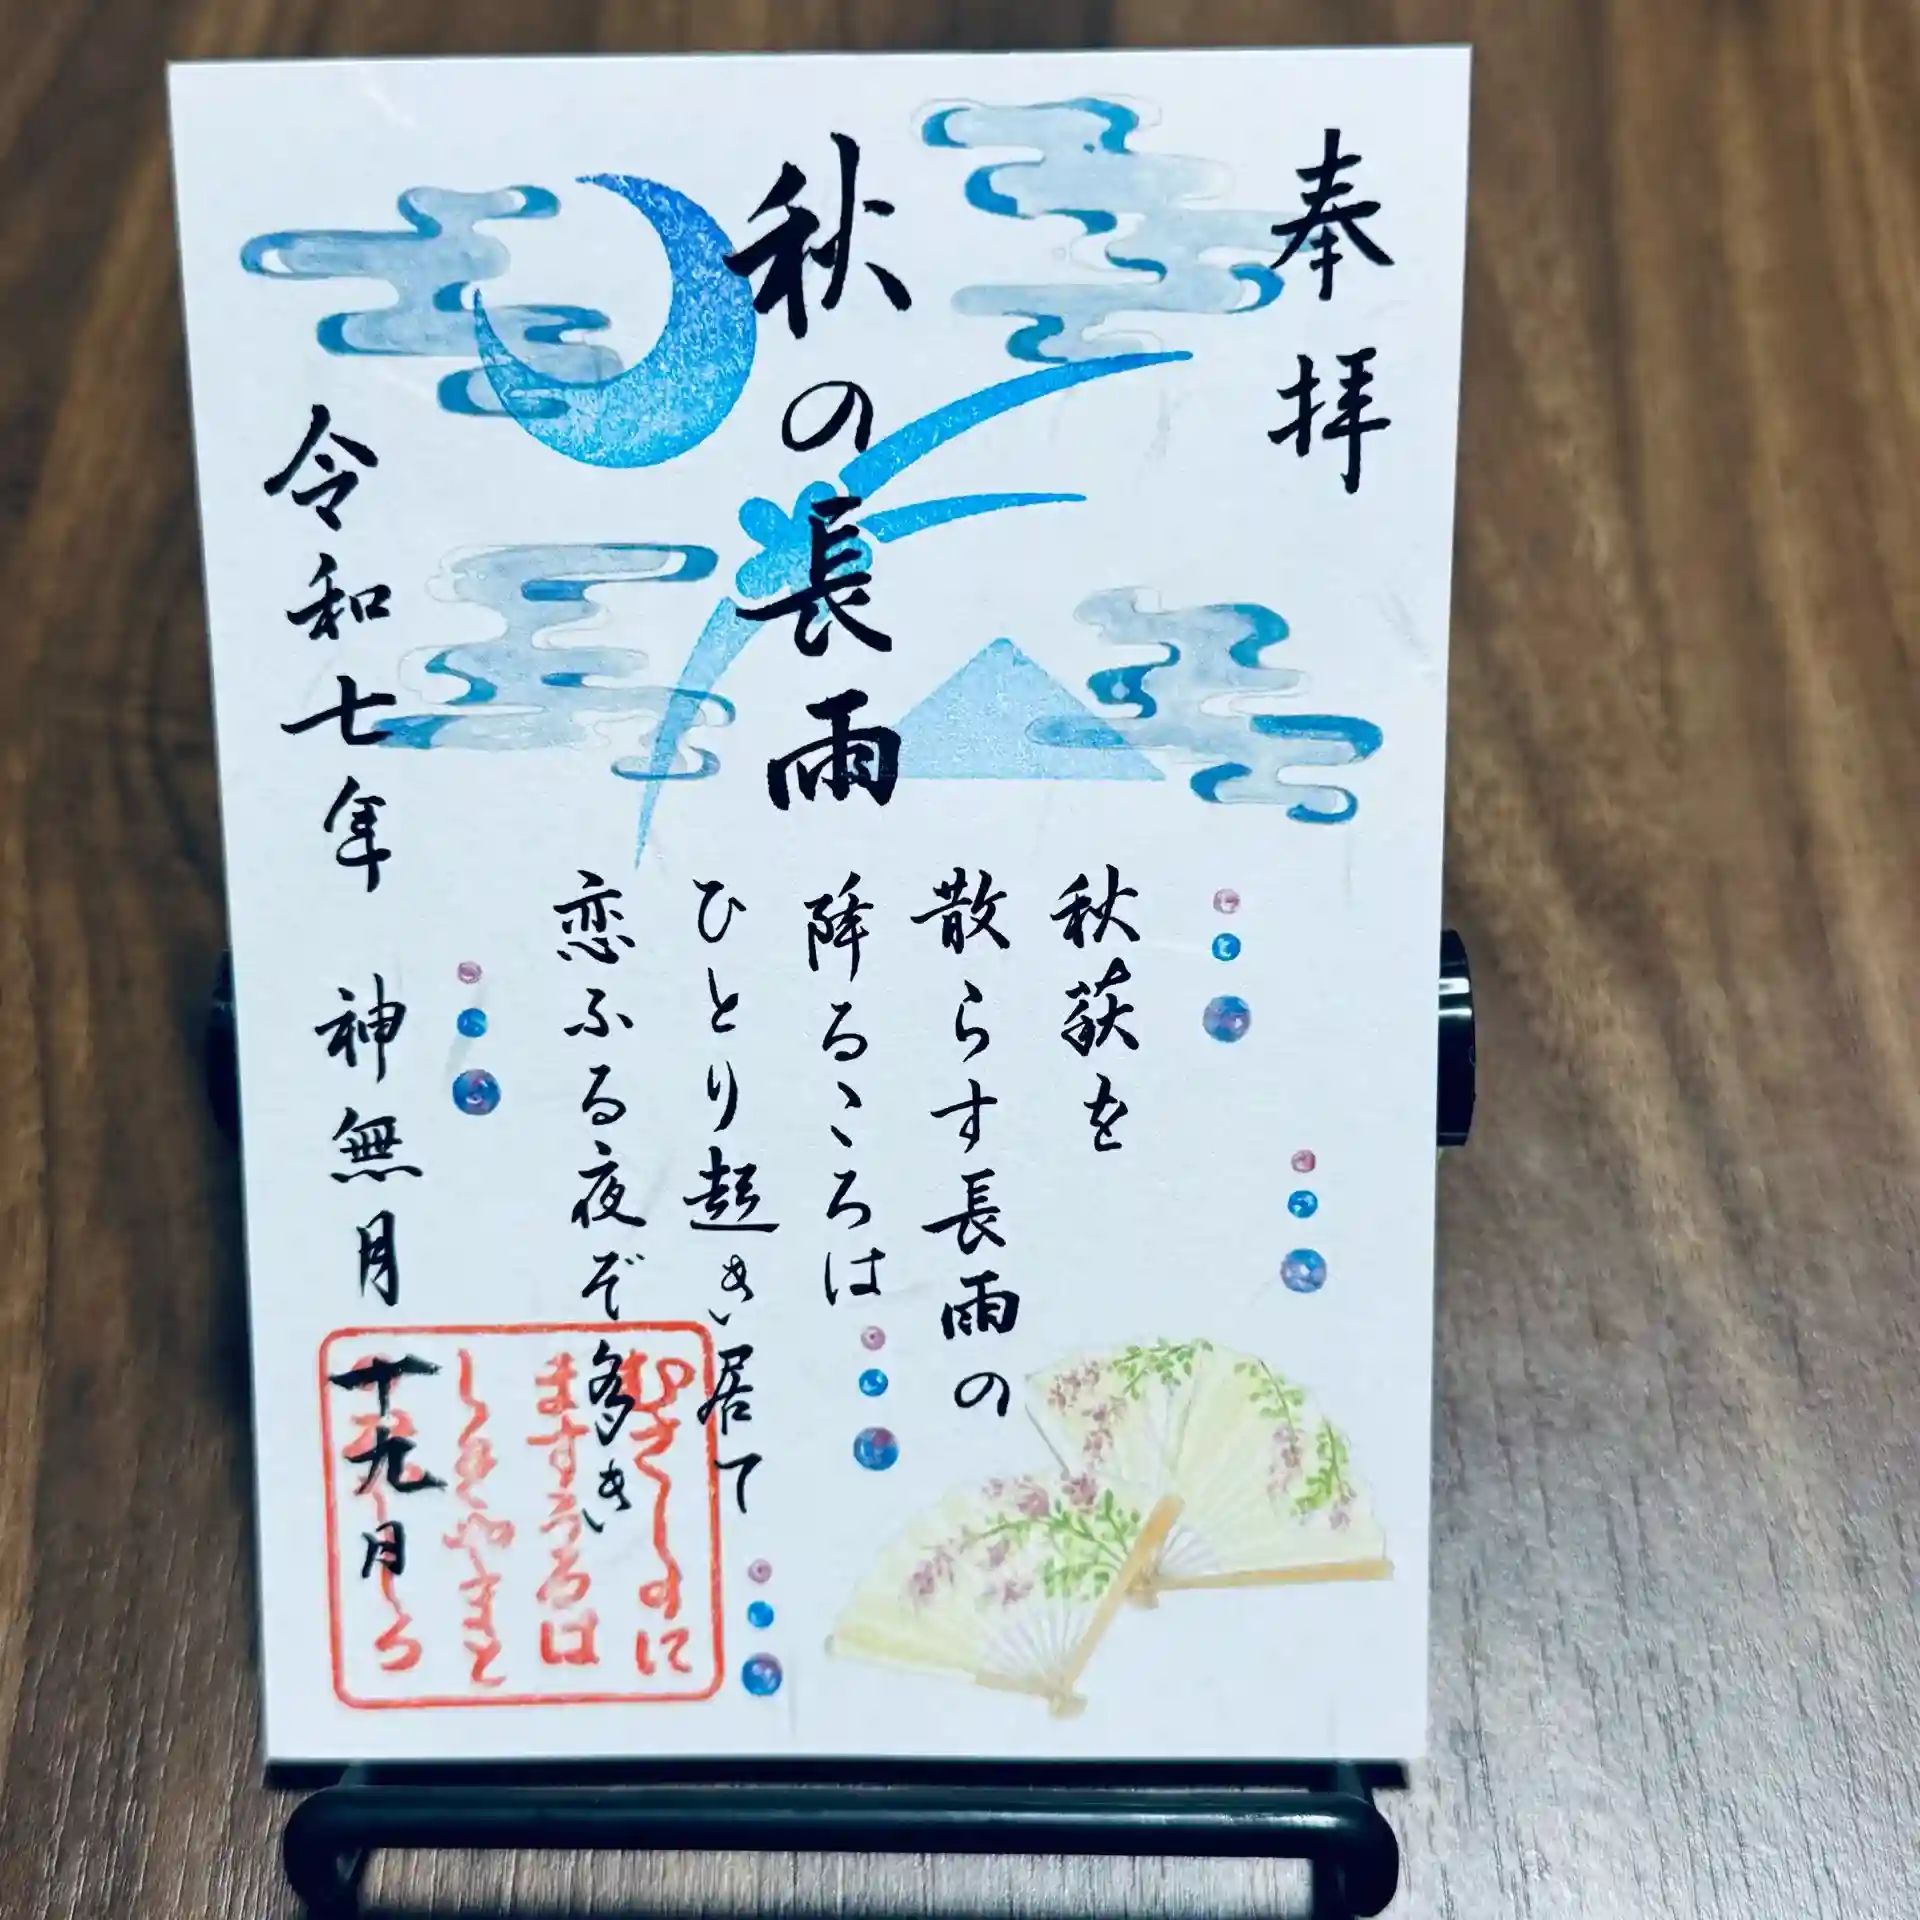 奉拝
秋の長雨
秋萩を
散らす長雨の
降るころは
ひとり起き居て
恋ふる夜ぞ多き
令和七年 神無月 十九日
ますうるは
しきやまと